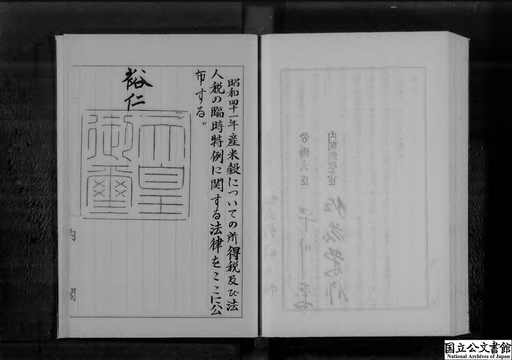 昭和四十一年産米穀についての所得税及び法
人税の臨時特例に関する法律をここに公
布する。
裕仁
天皇
御璽
内閣
内閣総理大臣
労働大臣
国立公文書館
National Archives of Japan